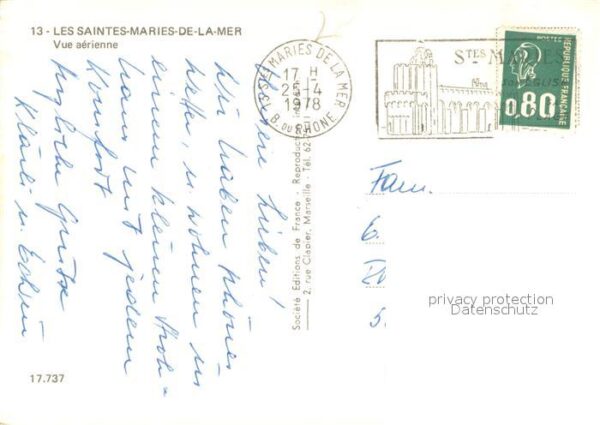 13 - LES SAINTES-MARIES-DE-LA-MER
Vue aérienne
Meine Lieben!
Wir haben schönes
Wetter, u. wohnen in
einem kleinen Stroh-
haus mit jedem
Komfort
herzliche Grüsse
u. Edwin
17.737
Société Editions de France - Reproduction
2, rue Clapier, Marseille - Tél. 62
STES MARIES DE LA MER
17 H
25-4
1978
B. DU RHONE
STES MARIES
SON EGLISE
POSTES
REPUBLIQUE FRANÇAISE
0,80
Fam.
privacy protection
Datenschutz